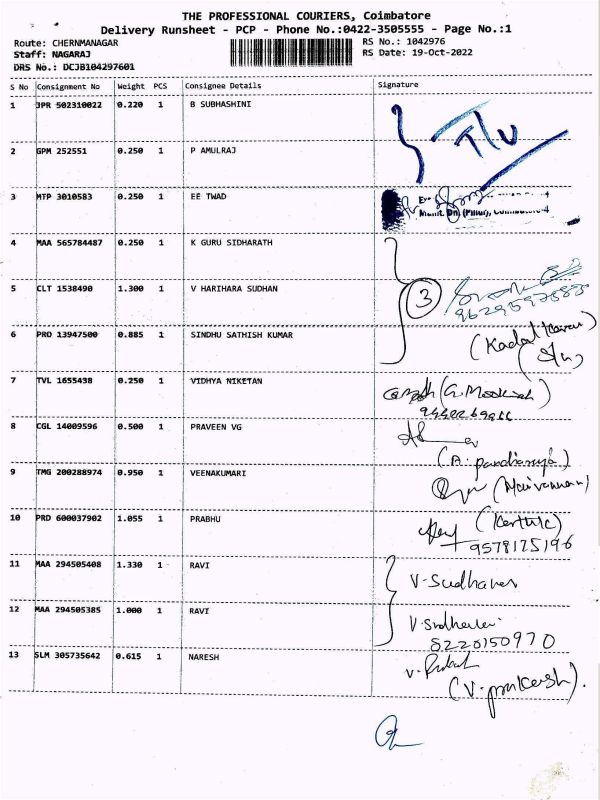 THE PROFESSIONAL COURIERS, Coimbatore
Delivery Runsheet - PCP - Phone No.:0422-3505555 - Page No.:1
Route: CHERNMANAGAR
RS No.: 1042976
Staff: NAGARAJ
RS Date: 19-Oct-2022
DRS No.: DCJB104297601
S No Consignment No Weight PCS Consignee Details Signature
1 JPR 502310022 0.220 1 B SUBHASHINI
2 GPM 252551 0.250 1 P AMULRAJ
3 MTP 3010583 0.250 1 EE TWAD
4 MAA 565784487 0.250 1 K GURU SIDHARATH
5 CLT 1538490 1.300 1 V HARIHARA SUDHAN
3
6 PRD 13947500 0.885 1 SINDHU SATHISH KUMAR
7 TVL 1655438 0.250 1 VIDHYA NIKETAN
8 CGL 14009596 0.500 1 PRAVEEN VG
9 TMG 200288974 0.950 1 VEENAKUMARI
10 PRD 600037902 1.055 1 PRABHU
9578125196
11 MAA 294505408 1.330 1 RAVI
12 MAA 294505385 1.000 1 RAVI
8220150970
13 SLM 305735642 0.615 1 NARESH
(V. prakash).